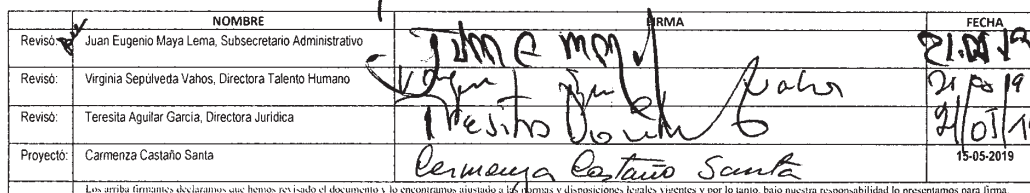 NOMBRE FIRMA FECHA
Revisó: Juan Eugenio Maya Lema, Subsecretario Administrativo
Revisó: Virginia Sepúlveda Vahos, Directora Talento Humano
Revisó: Teresita Aguilar Garcia, Directora Jurídica
Proyectó: Carmenza Castaño Santa Carmenza Castaño Santa 15-05-2019
Los arriba firmantes declaramos que hemos revisado el documento y lo encontramos ajustado a las normas y disposiciones legales vigentes y por lo tanto, bajo nuestra responsabilidad lo presentamos para firma.